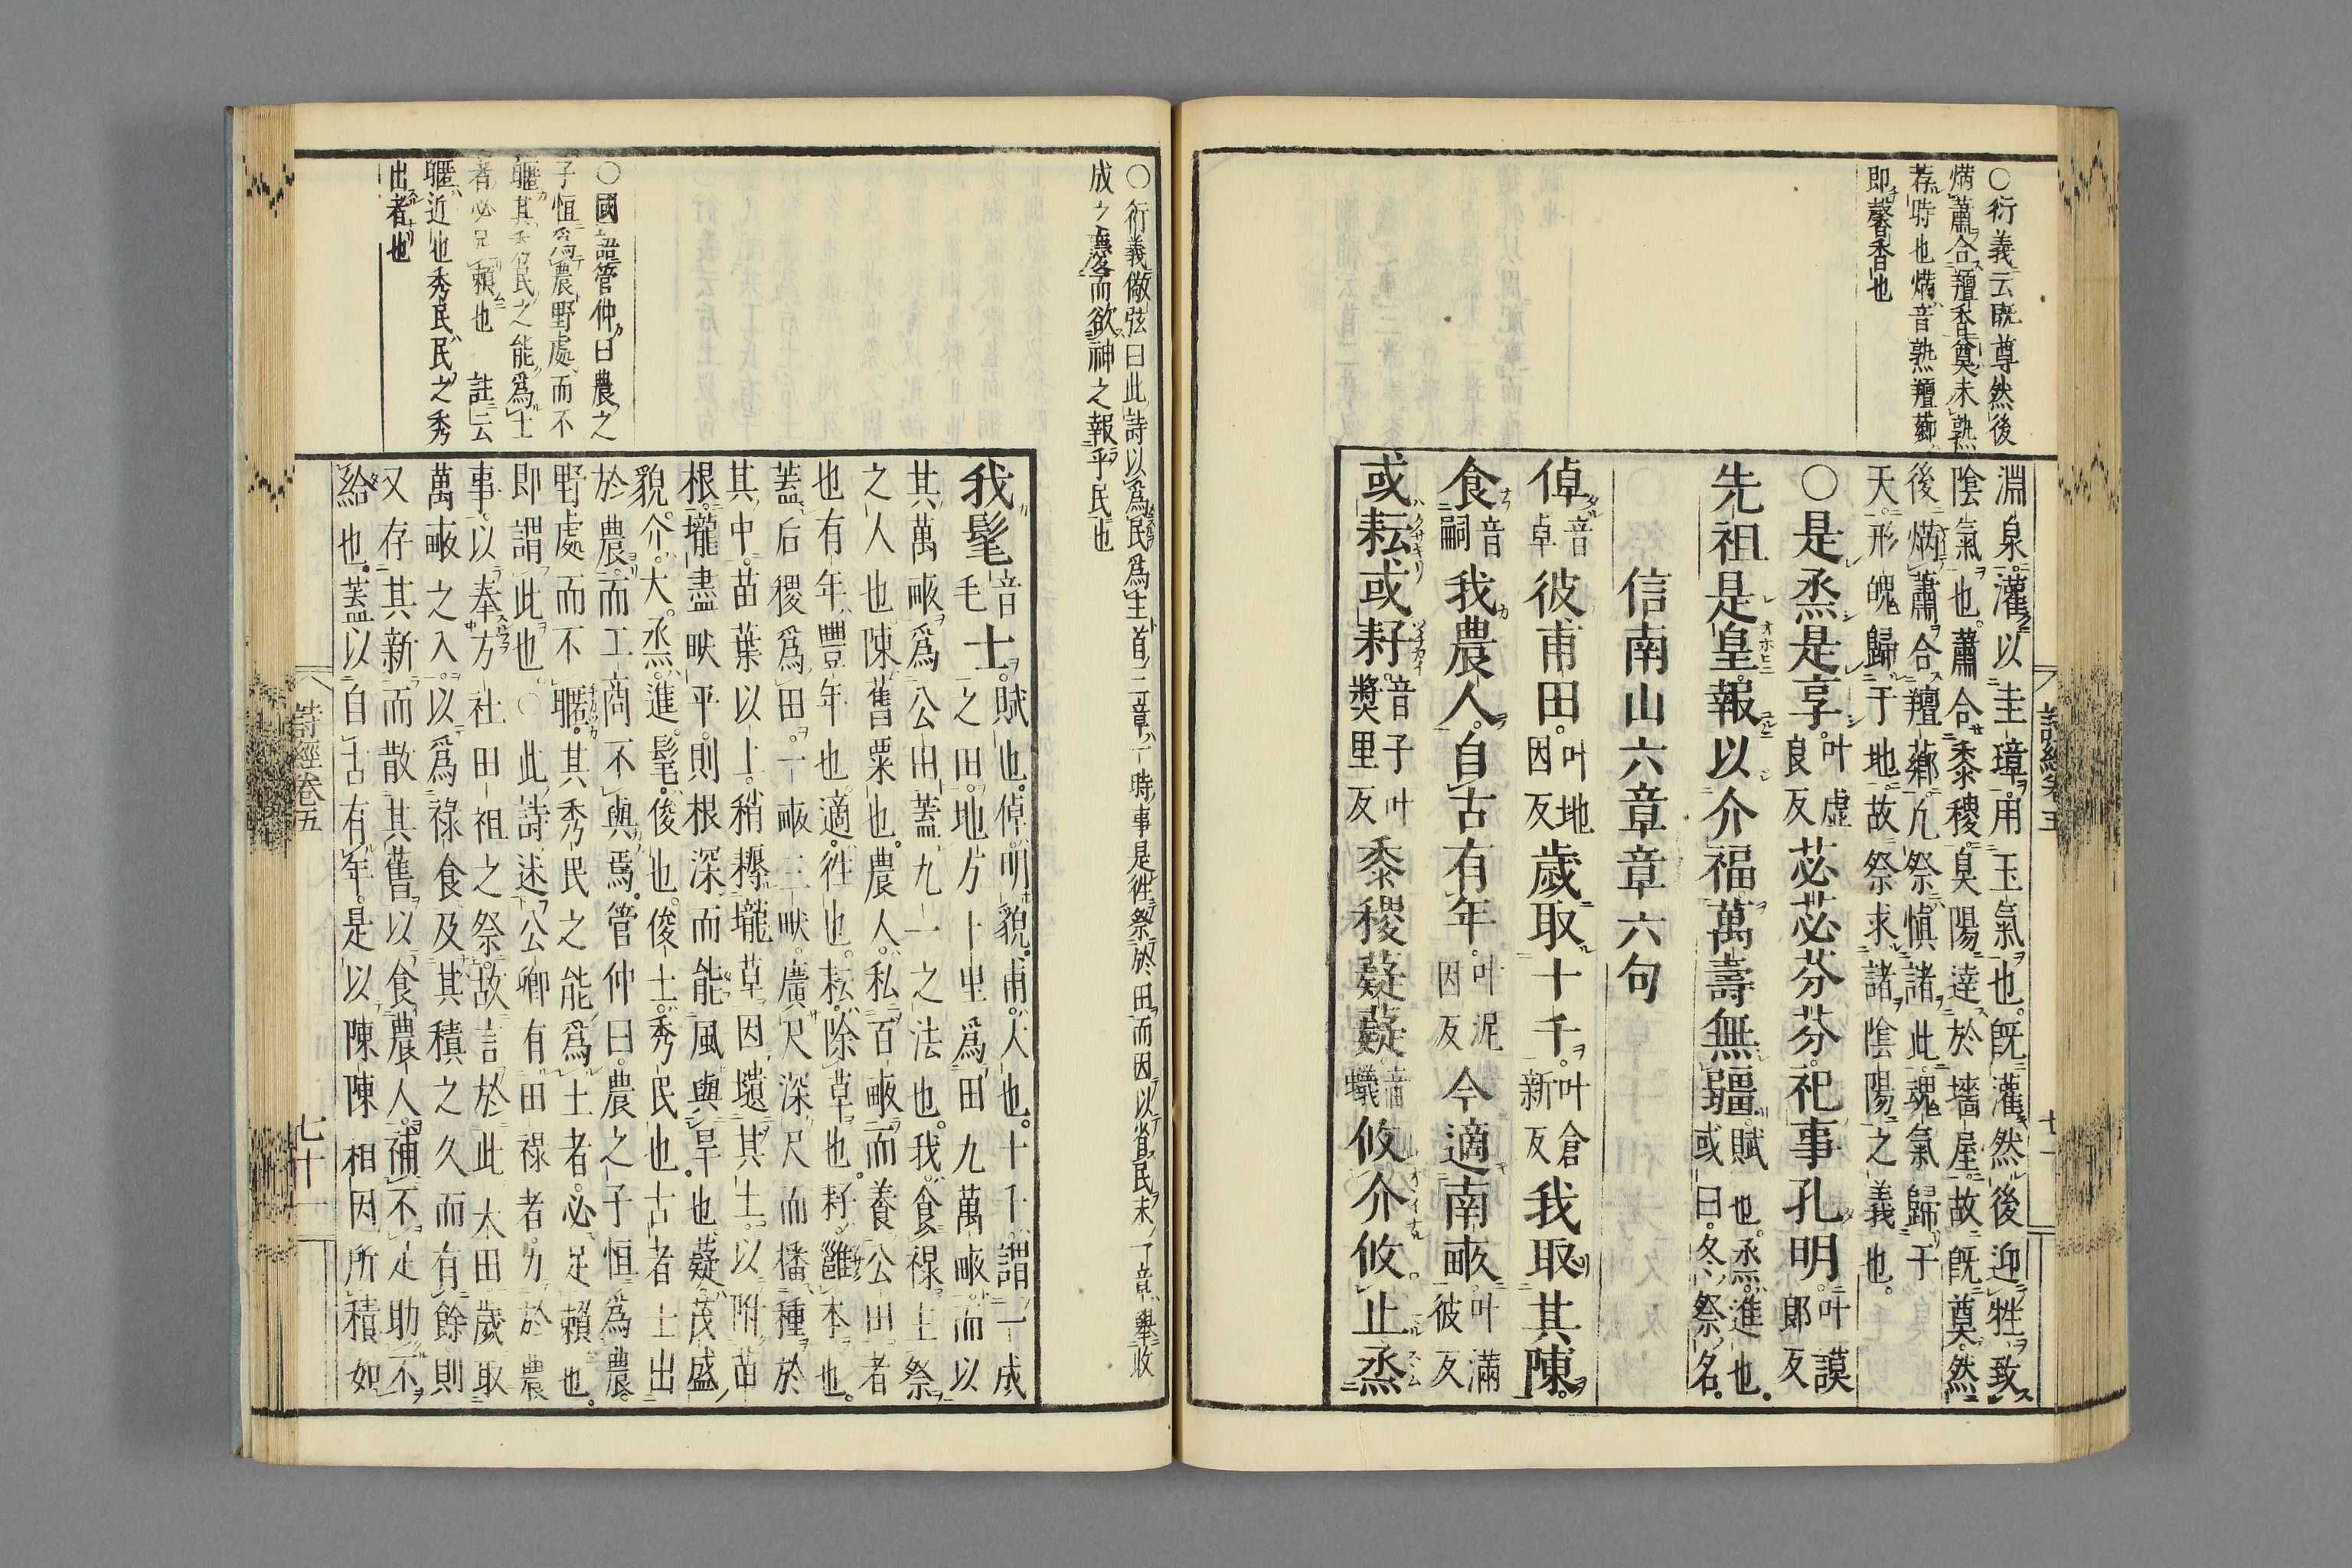 ○衍義云既尊然後
焫蕭合羶香奠未熟
荐時也焫音熟羶薌
即馨香也
淵泉灌以圭璋用玉氣也既灌然後迎牲致
陰氣也蕭合黍稷臭陽達於墻屋故既奠然
後焫蕭合羶薌凡祭愼諸此魂氣歸于
天形魄歸于地故祭求諸陰陽之義也
○是烝是享叶虛良反苾苾芬芬祀事孔明叶謨郎反
先祖是皇報以介福萬壽無疆賦也烝進也或曰冬祭名
信南山六章章六句
倬音卓彼甫田叶地因反歲取十千叶倉新反我取其陳
食音嗣我農人自古有年叶泥因反今適南畝叶滿彼反
或耘或耔音子叶獎里反黍稷薿薿音蟻攸介攸止烝
詩經卷五
○衍義倣弦曰此詩以爲民爲主首二章一時事是徃祭於田而因以省民末了章舉收
成之慶而欲神之報乎民也
我髦音毛士賦也倬明貌甫大也十千謂一成
之田地方十里爲田九萬畝而以
其萬畝爲公田蓋九一之法也我食祿主祭
之人也陳舊粟也農人私百畝而養公田者
也有年豐年也適徃也耘除草也耔雝本也
蓋后稷爲田一畝三畎廣尺深尺而播種於
其中苗葉以上稍耨壠草因壝其土以附苗
根壠盡畎平則根深而能風與旱也薿茂盛
貌介大烝進髦俊也俊士秀民也古者士出
於農而工商不與焉管仲曰農之子恒爲農
野處而不暱其秀民之能爲士者必足賴也
即謂此也○此詩述公卿有田祿者力於農
事以奉方社田祖之祭故言於此大田歲取
萬畝之入以爲祿食及其積之久而有餘則
又存其新而散其舊以食農人補不足助不
給也蓋以自古有年是以陳陳相因所積如
○國語管仲曰農之
子恒爲農野處而不
暱其秀民之能爲士
者必足賴也 註云
暱近也秀民民之秀
出者也
詩經卷五
七十一